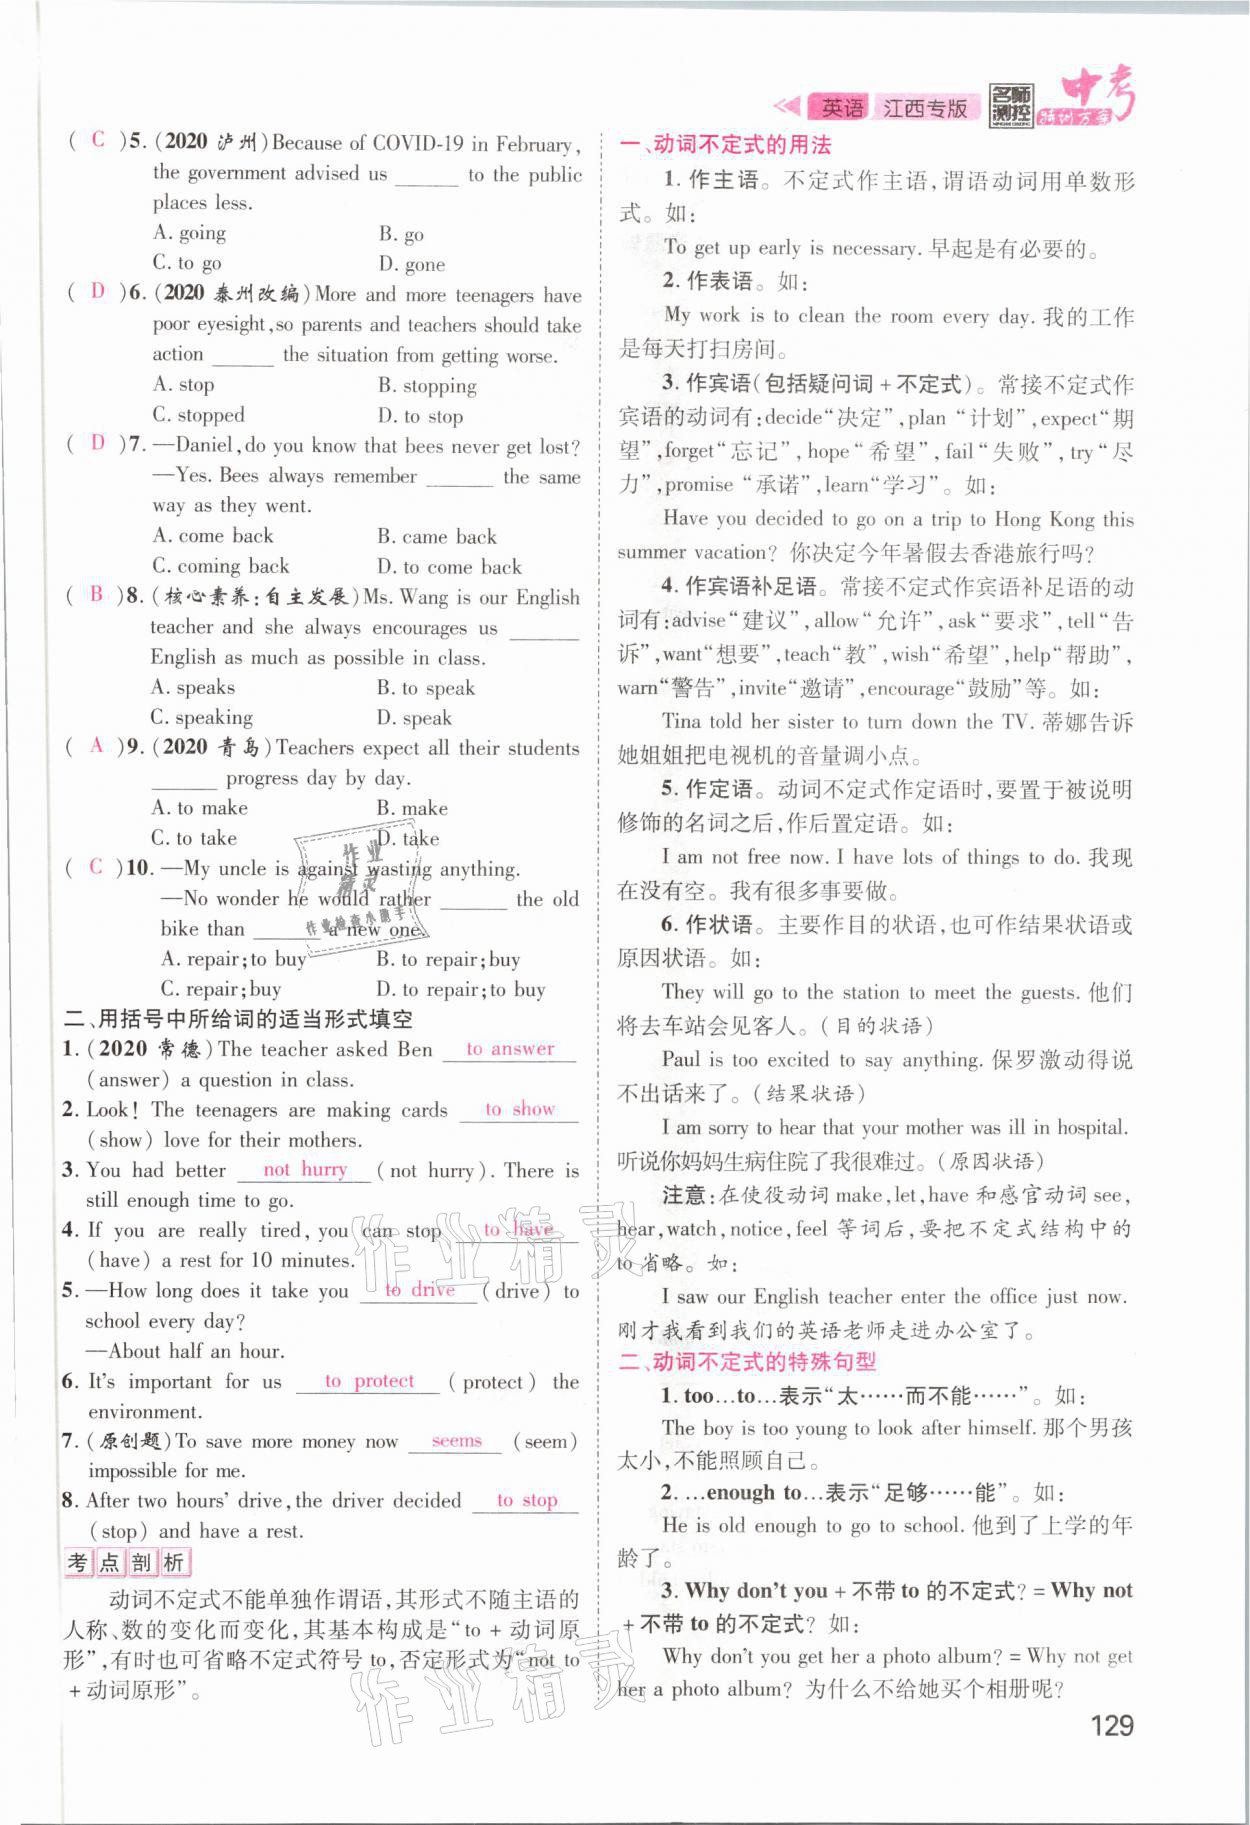 英语 江西专版 名师测控 中考
( C )5. (2020 泸州)Because of COVID-19 in February,
the government advised us ______ to the public
places less.
A. going B. go
C. to go D. gone
( D )6. (2020 泰州改编)More and more teenagers have
poor eyesight,so parents and teachers should take
action ______ the situation from getting worse.
A. stop B. stopping
C. stopped D. to stop
( D )7. —Daniel,do you know that bees never get lost?
—Yes. Bees always remember ______ the same
way as they went.
A. come back B. came back
C. coming back D. to come back
( B )8. (核心素养:自主发展)Ms. Wang is our English
teacher and she always encourages us ______
English as much as possible in class.
A. speaks B. to speak
C. speaking D. speak
( A )9. (2020 青岛)Teachers expect all their students
______ progress day by day.
A. to make B. make
C. to take D. take
( C )10. —My uncle is against wasting anything.
—No wonder he would rather ______ the old
bike than ______ a new one.
A. repair;to buy B. to repair;buy
C. repair;buy D. to repair;to buy
二、用括号中所给词的适当形式填空
1. (2020 常德)The teacher asked Ben to answer
(answer) a question in class.
2. Look! The teenagers are making cards to show
(show) love for their mothers.
3. You had better not hurry (not hurry). There is
still enough time to go.
4. If you are really tired,you can stop to have
(have) a rest for 10 minutes.
5. —How long does it take you to drive (drive) to
school every day?
—About half an hour.
6. It's important for us to protect (protect) the
environment.
7. (原创题)To save more money now seems (seem)
impossible for me.
8. After two hours' drive,the driver decided to stop
(stop) and have a rest.
考点剖析
动词不定式不能单独作谓语,其形式不随主语的
人称、数的变化而变化,其基本构成是“to + 动词原
形”,有时也可省略不定式符号 to,否定形式为“not to
+ 动词原形”。
一、动词不定式的用法
1. 作主语。不定式作主语,谓语动词用单数形
式。如:
To get up early is necessary. 早起是有必要的。
2. 作表语。如:
My work is to clean the room every day. 我的工作
是每天打扫房间。
3. 作宾语(包括疑问词 + 不定式)。常接不定式作
宾语的动词有:decide“决定”,plan “计划”,expect“期
望”,forget“忘记”,hope“希望”,fail“失败”,try“尽
力”,promise “承诺”,learn“学习”。如:
Have you decided to go on a trip to Hong Kong this
summer vacation? 你决定今年暑假去香港旅行吗?
4. 作宾语补足语。常接不定式作宾语补足语的动
词有:advise“建议”,allow“允许”,ask“要求”,tell“告
诉”,want“想要”,teach“教”,wish“希望”,help“帮助”,
warn“警告”,invite“邀请”,encourage“鼓励”等。如:
Tina told her sister to turn down the TV. 蒂娜告诉
她姐姐把电视机的音量调小点。
5. 作定语。动词不定式作定语时,要置于被说明
修饰的名词之后,作后置定语。如:
I am not free now. I have lots of things to do. 我现
在没有空。我有很多事要做。
6. 作状语。主要作目的状语,也可作结果状语或
原因状语。如:
They will go to the station to meet the guests. 他们
将去车站会见客人。(目的状语)
Paul is too excited to say anything. 保罗激动得说
不出话来了。(结果状语)
I am sorry to hear that your mother was ill in hospital.
听说你妈妈生病住院了我很难过。(原因状语)
注意:在使役动词 make,let,have 和感官动词 see,
hear,watch,notice,feel 等词后,要把不定式结构中的
to 省略。如:
I saw our English teacher enter the office just now.
刚才我看到我们的英语老师走进办公室了。
二、动词不定式的特殊句型
1. too…to…表示“太……而不能……”。如:
The boy is too young to look after himself. 那个男孩
太小,不能照顾自己。
2. …enough to…表示“足够……能”。如:
He is old enough to go to school. 他到了上学的年
龄了。
3. Why don't you + 不带 to 的不定式? = Why not
+ 不带 to 的不定式? 如:
Why don't you get her a photo album? = Why not get
her a photo album? 为什么不给她买个相册呢?
129
作业精灵
作业检查小助手
作业精灵
作业精灵